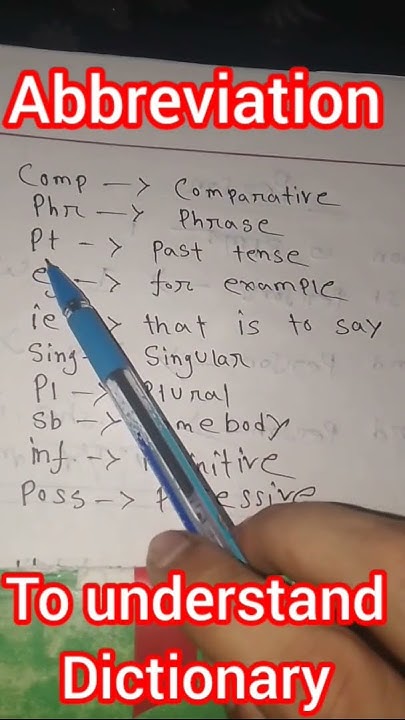 Abbreviation
Comp -> Comparative
Phr -> Phrase
Pt -> Past tense
-> for example
ie -> that is to say
Sing- Singular
Pl -> Plural
Sb -> Somebody
inf -> infinitive
Poss -> Possessive
To understand
Dictionary